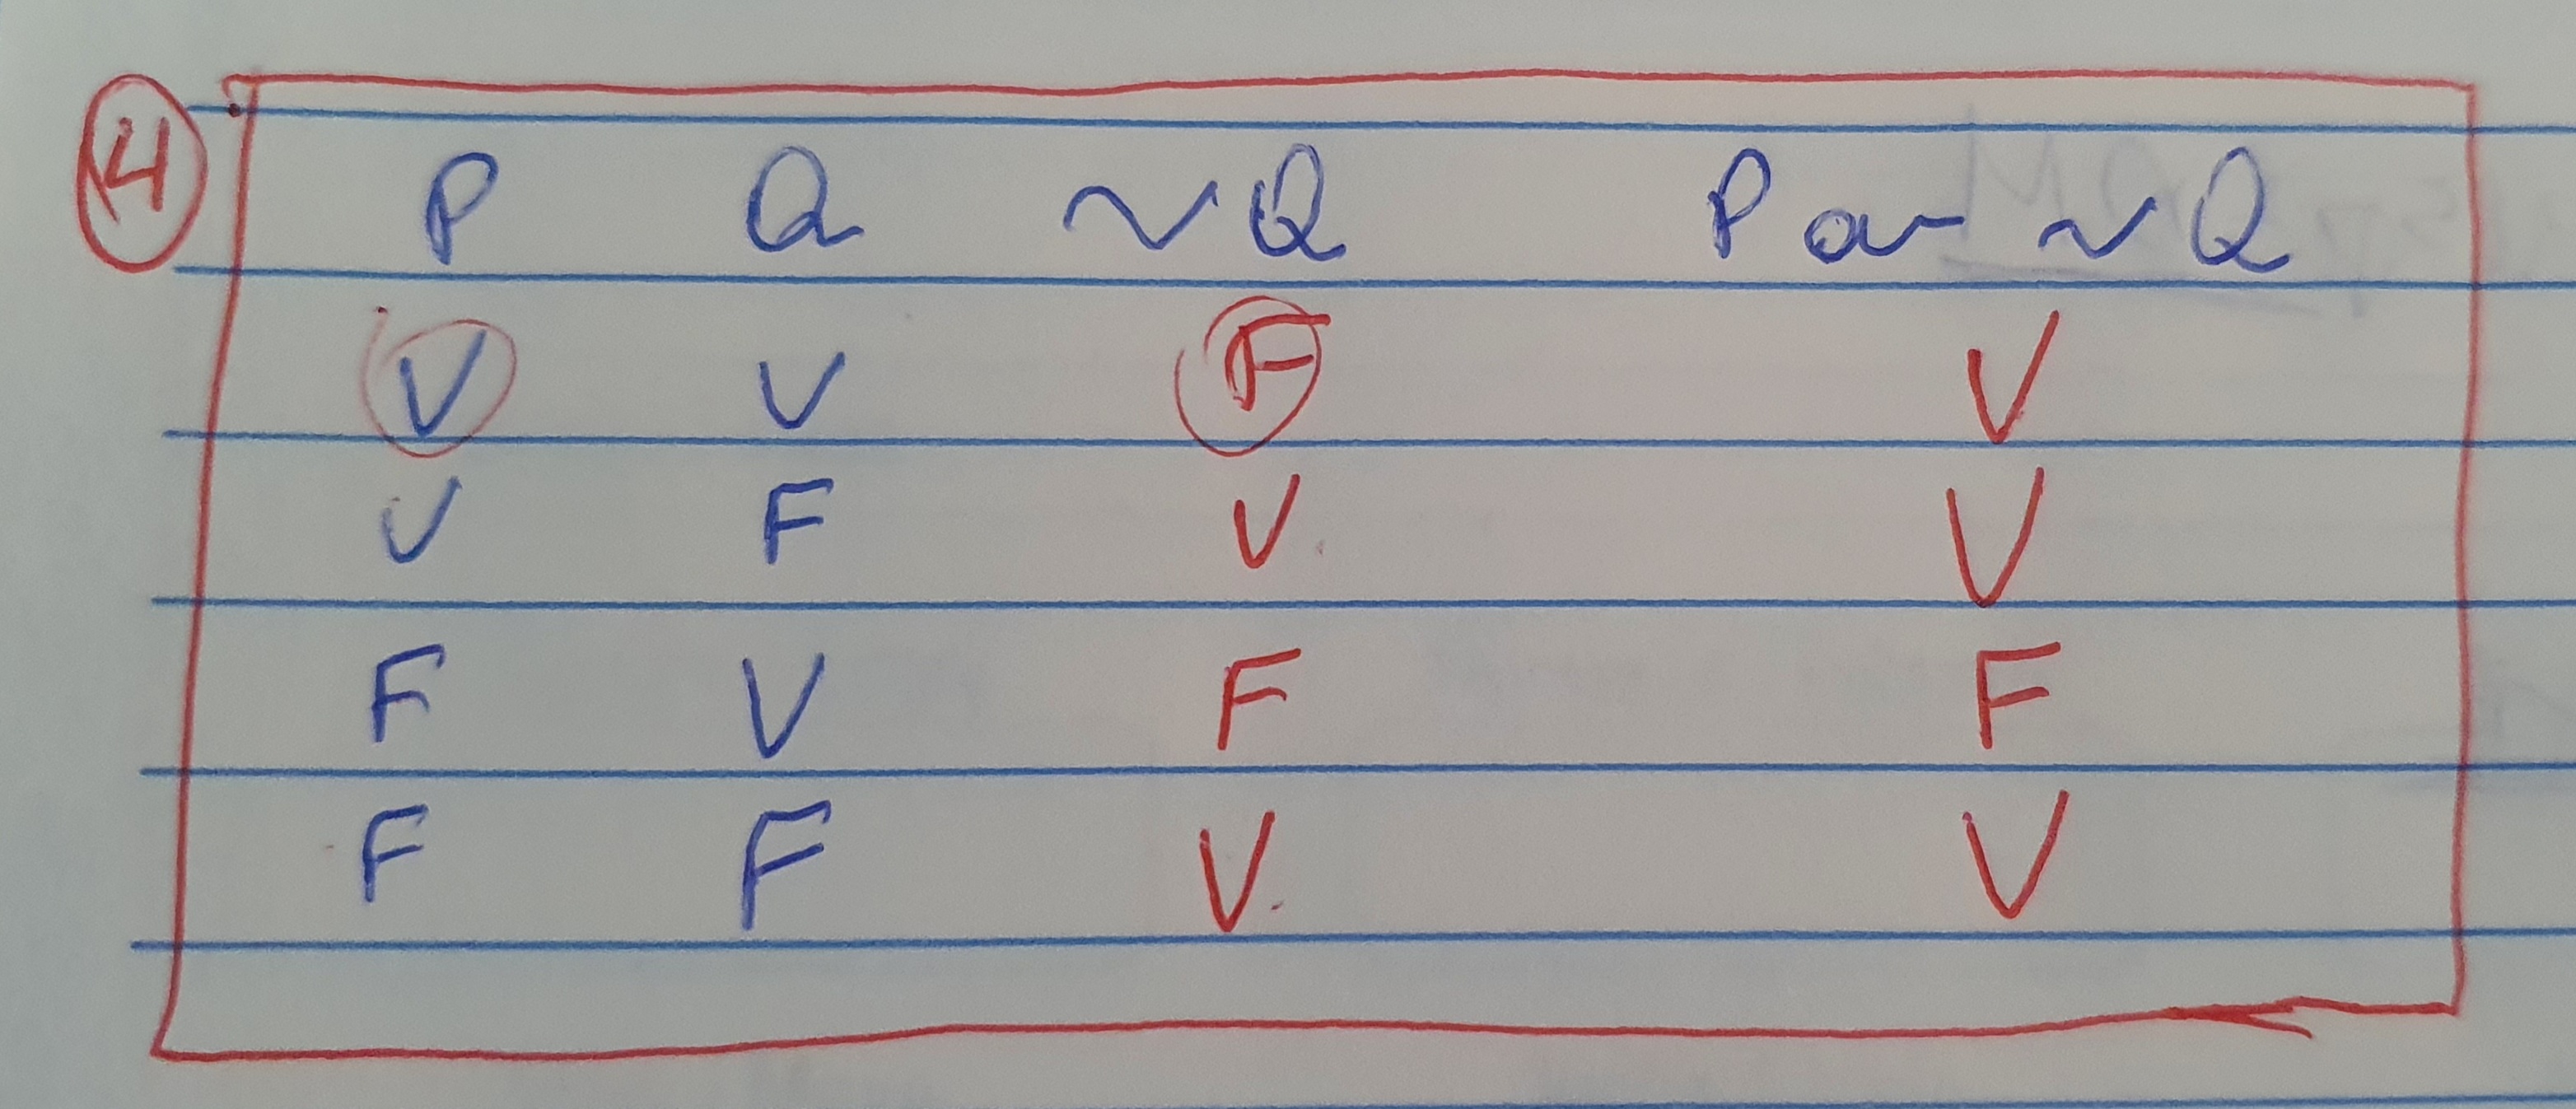 4
P Q ~Q P or ~Q
V V F V
V F V V
F V F F
F F V V